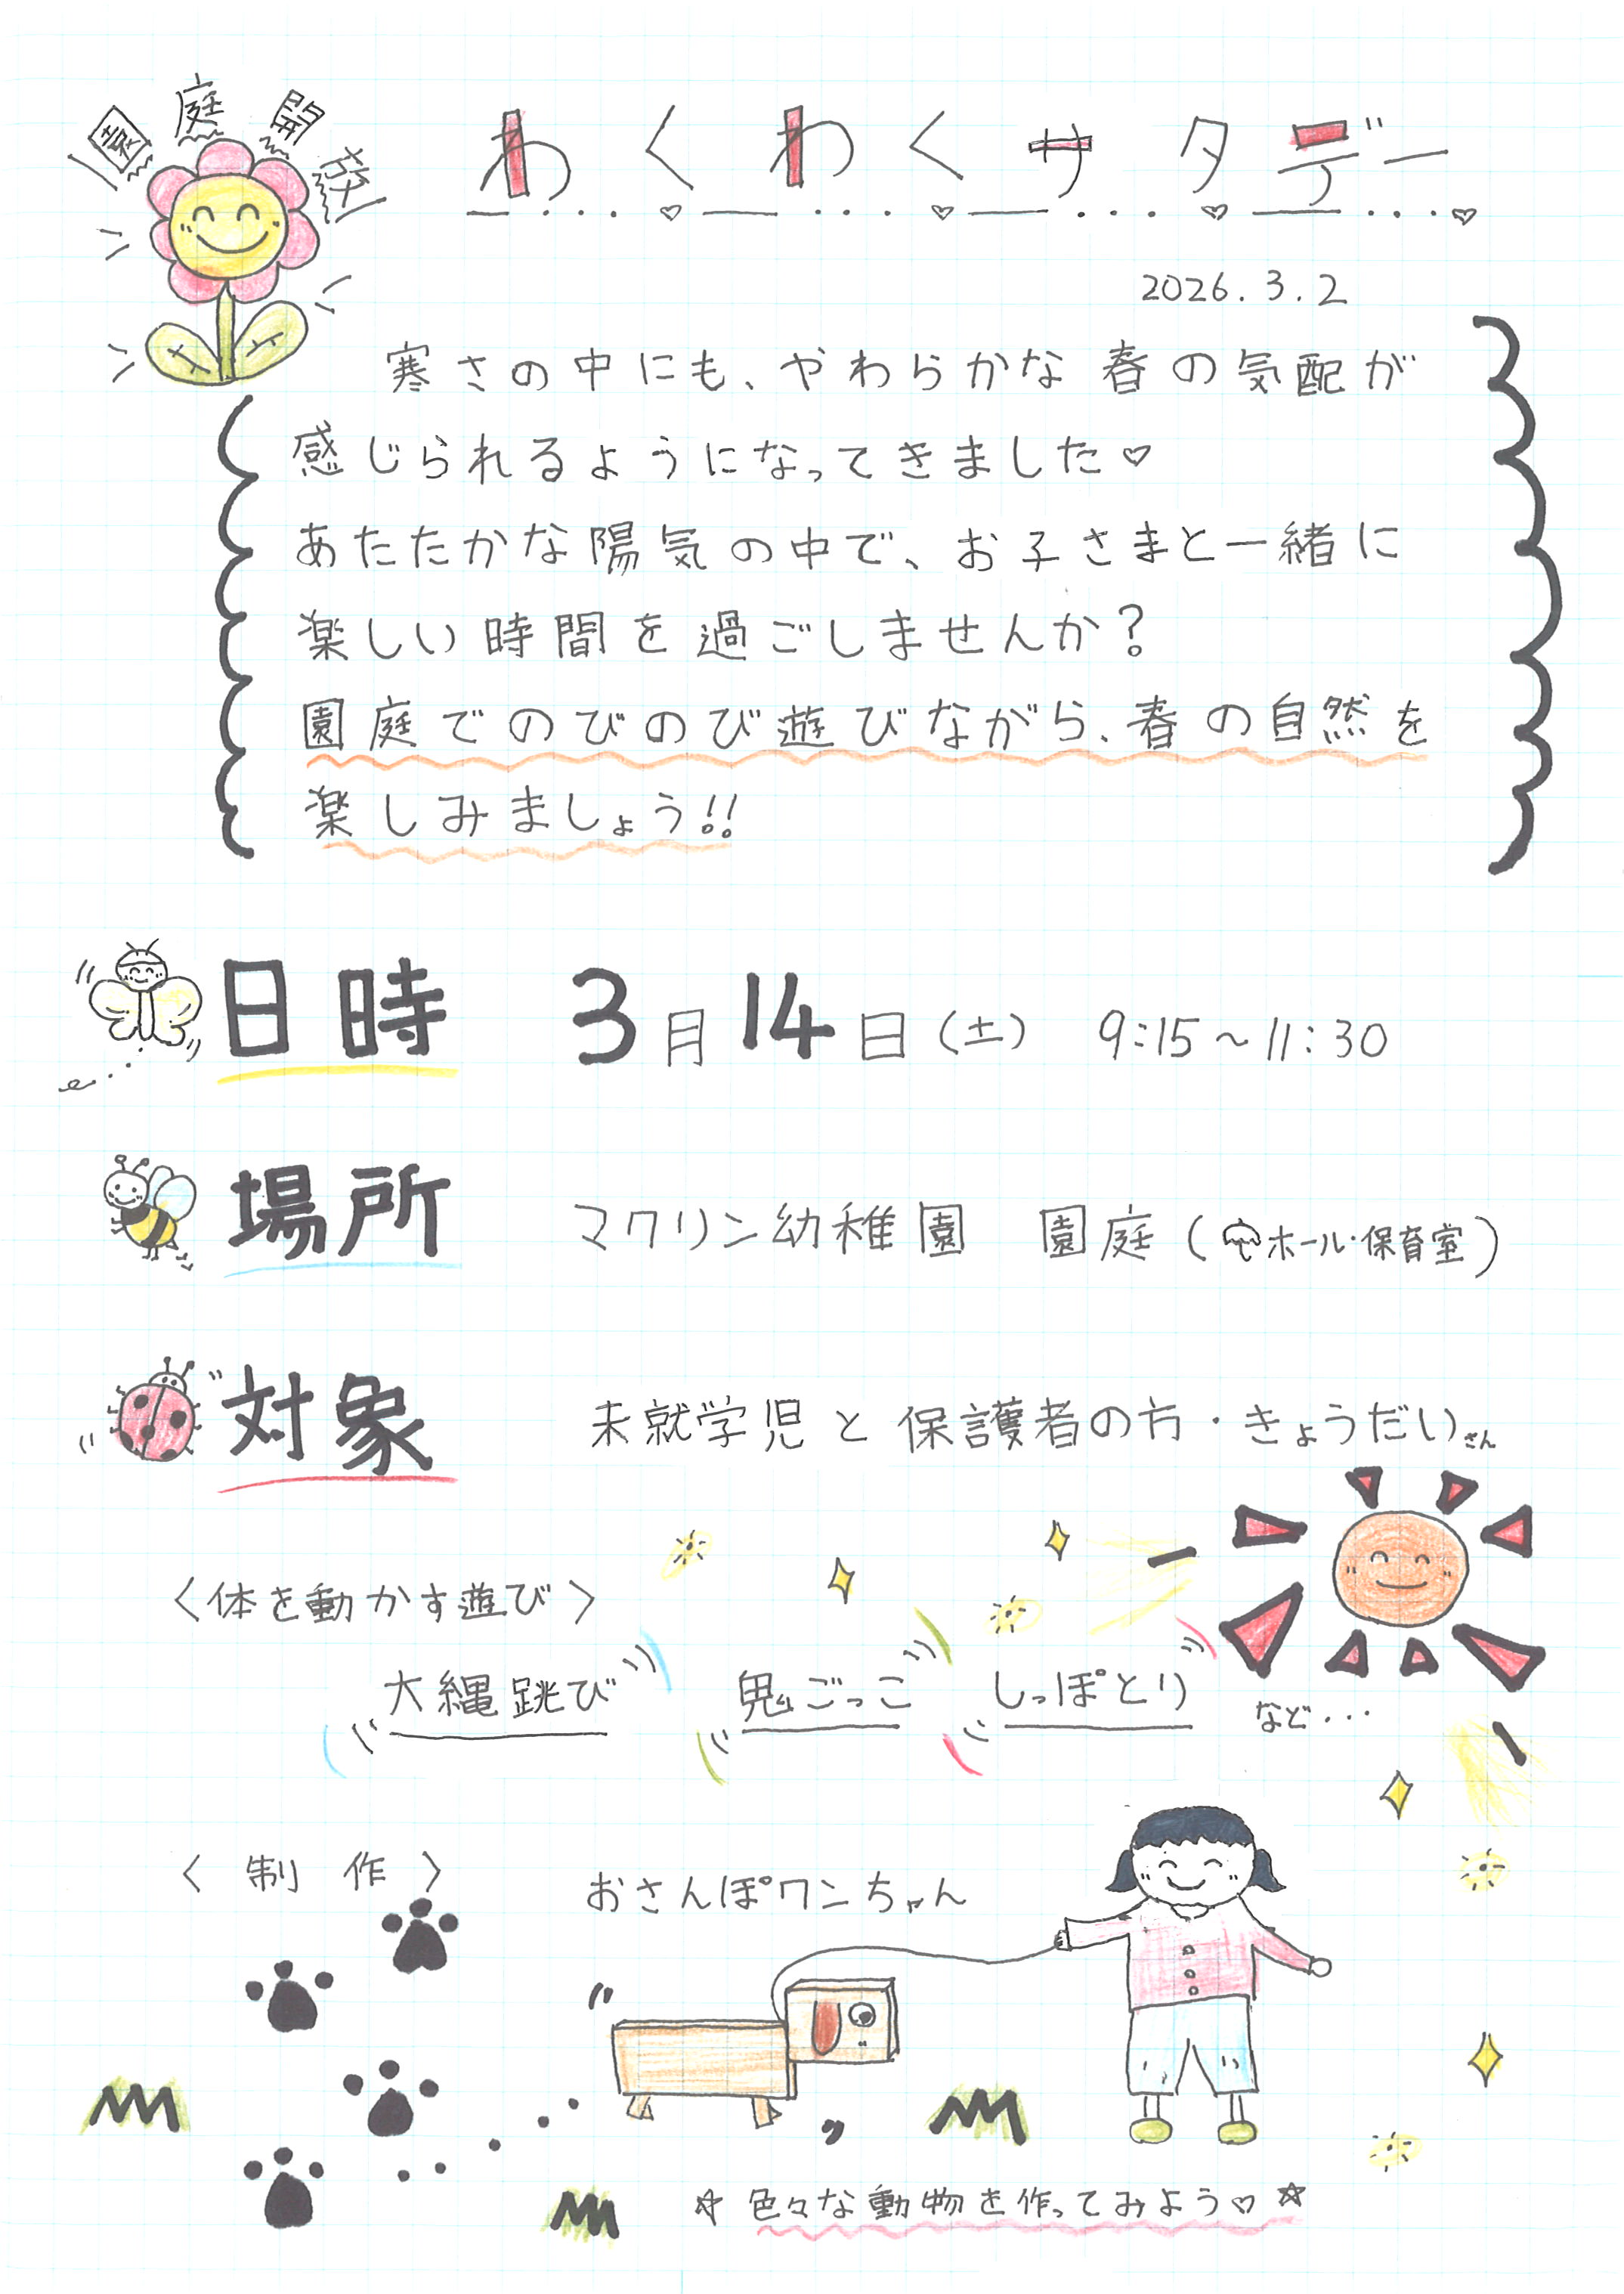 園庭開放
わくわくサタデー
2026.3.2
寒さの中にも、やわらかな春の気配が
感じられるようになってきました♡
あたたかな陽気の中で、お子さまと一緒に
楽しい時間を過ごしませんか？
園庭でのびのび遊びながら、春の自然を
楽しみましょう!!
日時 3月14日(土) 9:15～11:30
場所 マクリン幼稚園 園庭(☂ホール・保育室)
対象 未就学児と保護者の方・きょうだいさん
〈体を動かす遊び〉
大縄跳び 鬼ごっこ しっぽとり など・・・
〈制作〉 おさんぽワンちゃん
☆色々な動物を作ってみよう♡☆